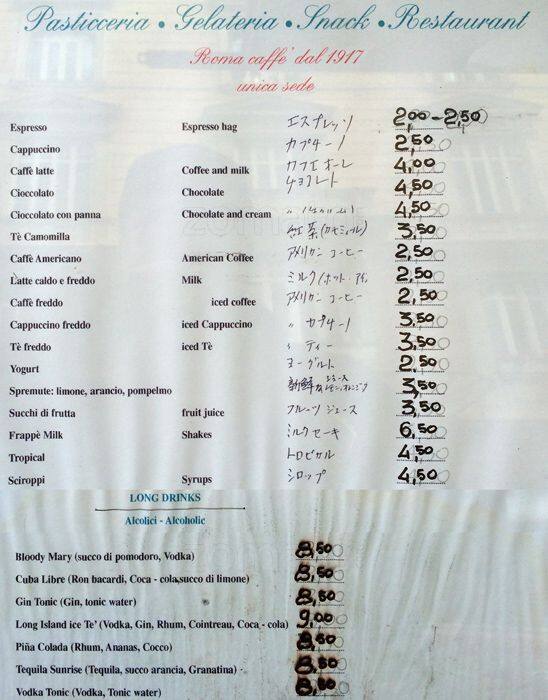 Pasticceria • Gelateria • Snack • Restaurant
Roma caffe' dal 1917
unica sede
Espresso Espresso hag エスプレッソ 2,00-2,50
Cappuccino カプチーノ 2,50
Caffè latte Coffee and milk カフェオーレ 4,00
Cioccolato Chocolate チョコレト 4,50
Cioccolato con panna Chocolate and cream 〃 4,50
Tè Camomilla 紅茶(カモミール) 3,50
Caffè Americano American Coffee アメリカン コーヒー 2,50
Latte caldo e freddo Milk ミルク(ホット・アイ 2,50
Caffè freddo iced coffee アメリカン コーヒー 2,50
Cappuccino freddo iced Cappuccino 〃 カプチーノ 3,50
Tè freddo iced Tè 〃 ティー 3,50
Yogurt ヨーグルト 2,50
Spremute: limone, arancio, pompelmo 新鮮 ジュース レモン,オレンジ 3,50
Succhi di frutta fruit juice フルーツ ジュース 3,50
Frappè Milk Shakes ミルクセーキ 6,50
Tropical トロピカル 4,50
Sciroppi Syrups シロップ 4,50
LONG DRINKS
Alcolici - Alcoholic
Bloody Mary (succo di pomodoro, Vodka) 8,50
Cuba Libre (Ron bacardi, Coca - cola,succo di limone) 8,50
Gin Tonic (Gin, tonic water) 8,50
Long Island ice Te' (Vodka, Gin, Rhum, Cointreau, Coca - cola) 9,00
Piña Colada (Rhum, Ananas, Cocco) 8,50
Tequila Sunrise (Tequila, succo arancia, Granatina) 8,50
Vodka Tonic (Vodka, Tonic water) 8,50